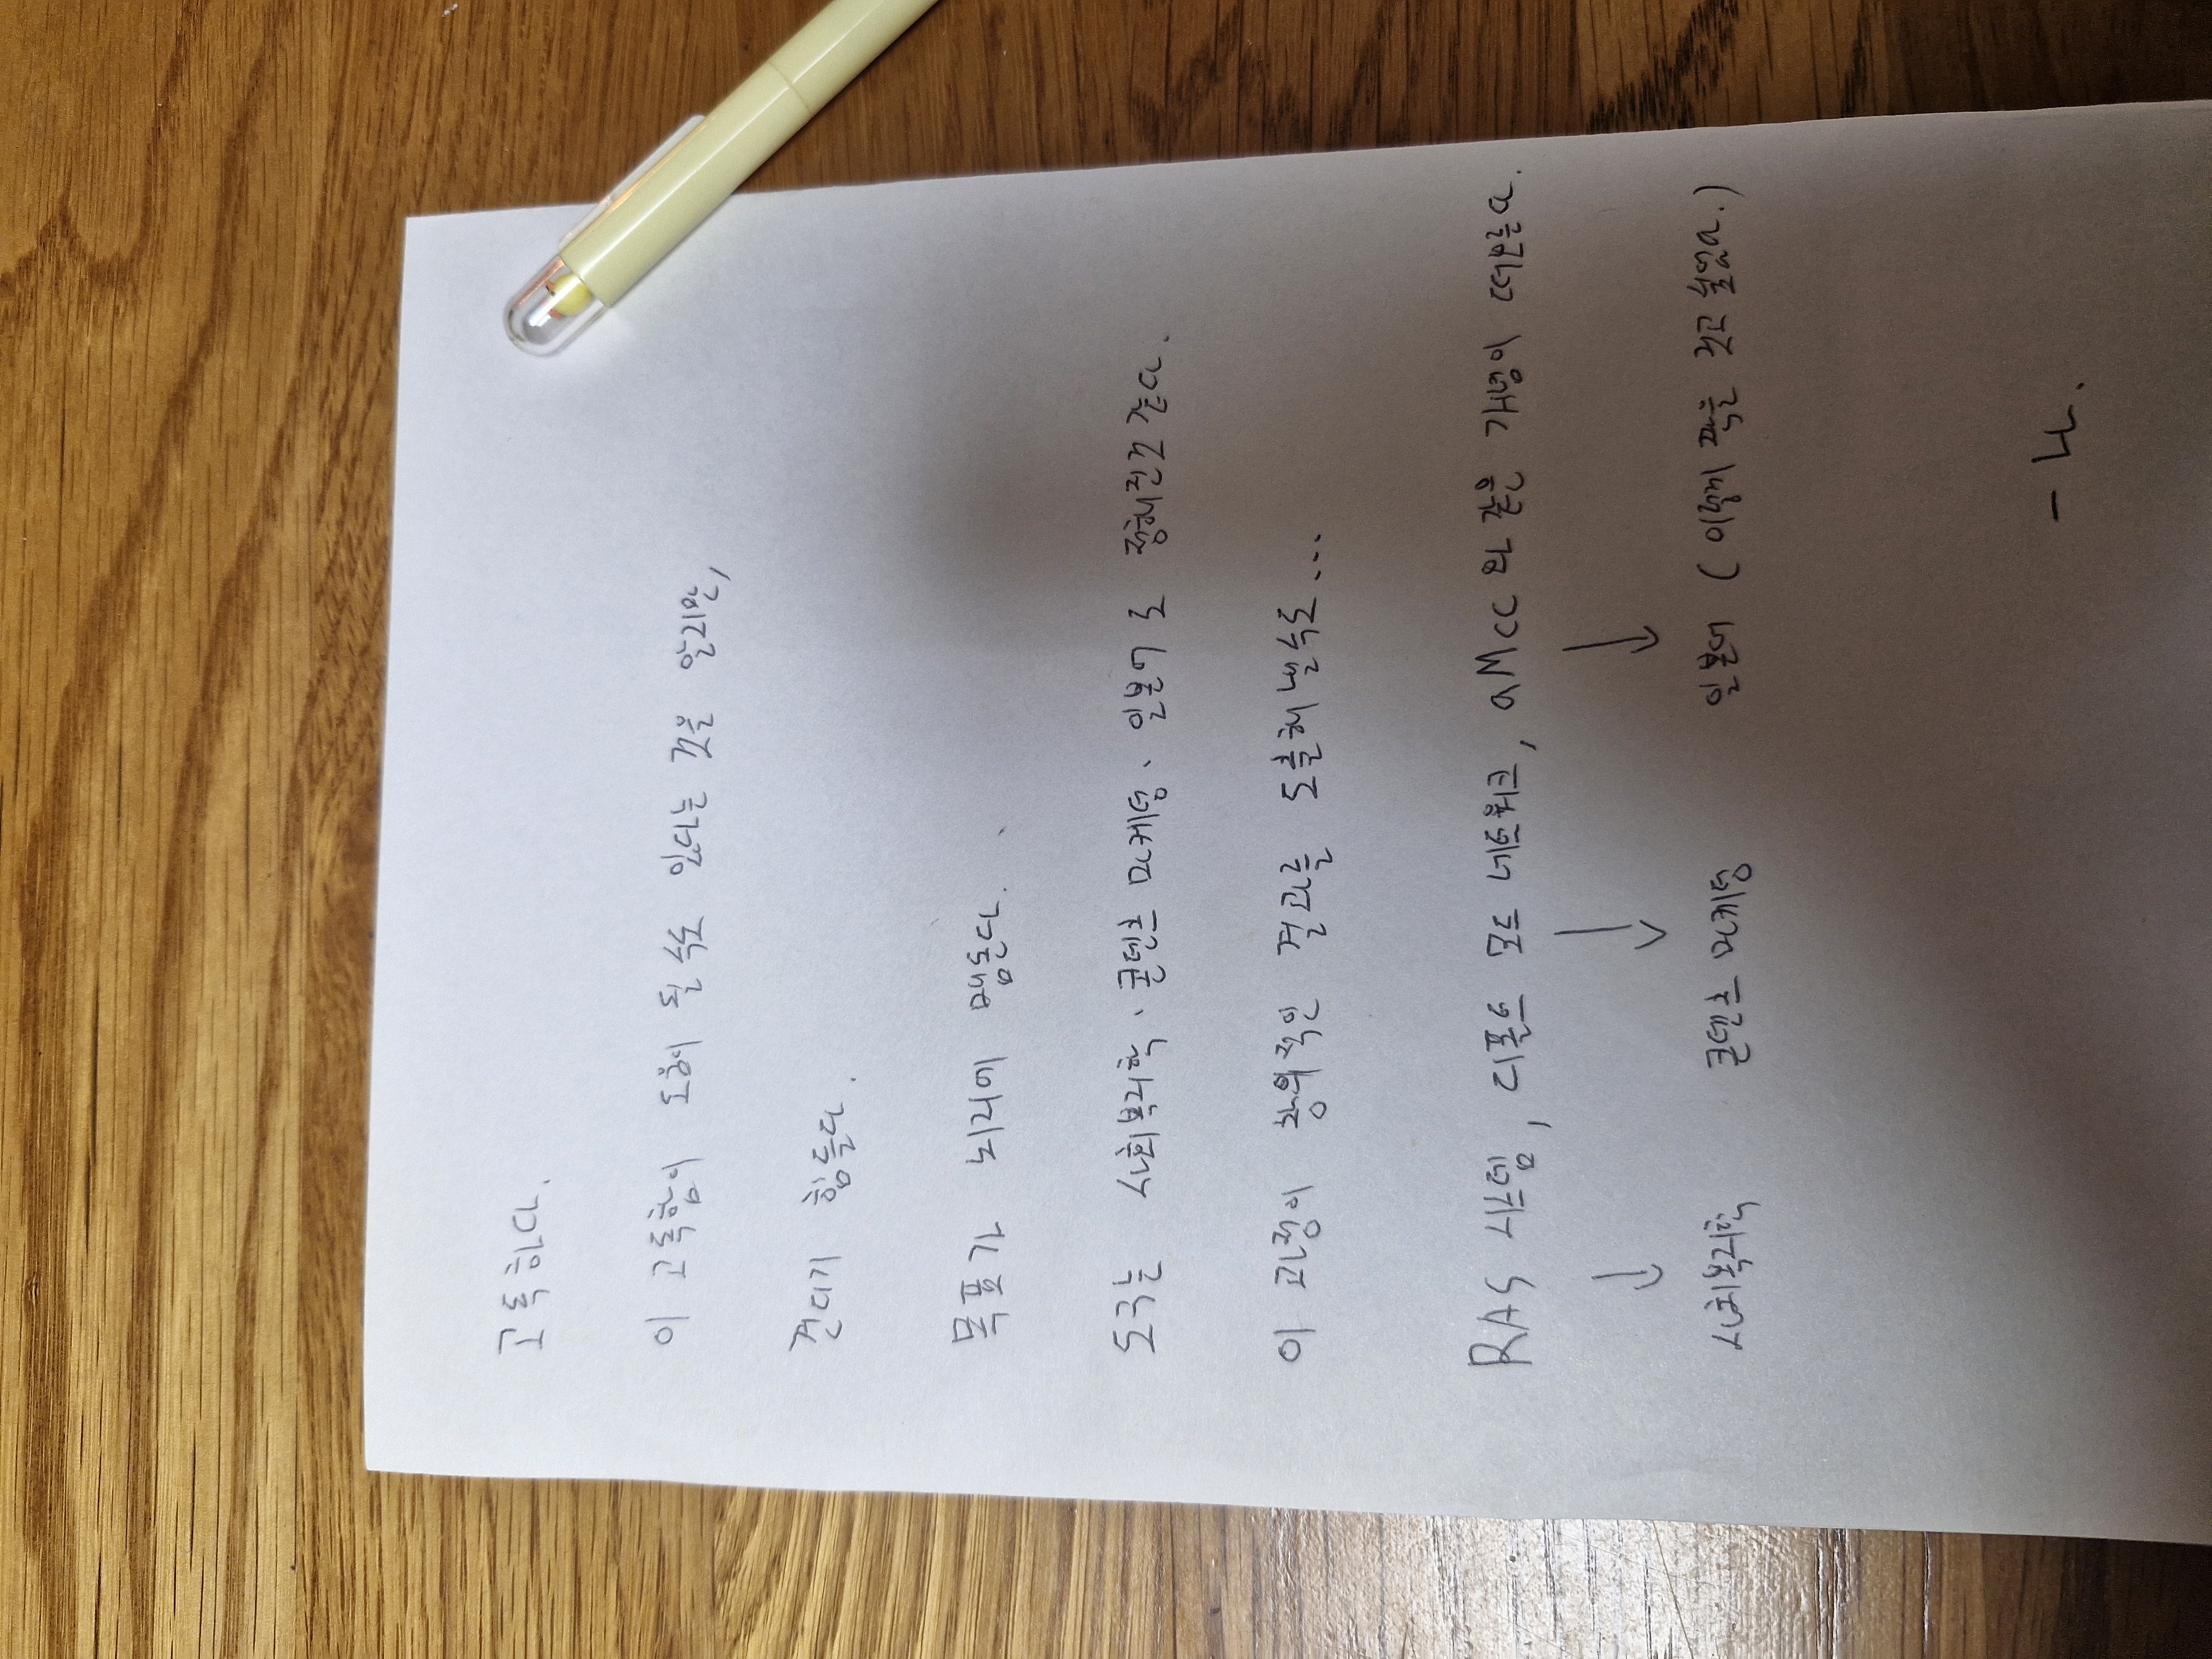 고독하다.
이 고독함이 도움이 될 수도 있다는 것을 알지만,
견디기 힘들다.
목표가 뇌리에 맴돈다.
도구는 사회복리학、콘텐츠 마케팅、일본어로 정해진것 같다.
이 과정이 창의적인 결과를 도출해낼수도...
RAS 시스템, 디폴트 모드 네트워크, aMCC 와 같은 개념이 떠오른다.
↓ ↓ ↓
사회복리학 콘텐츠 마케팅 일본어 (이렇게 적은 것고 싶었다.)
- 나.